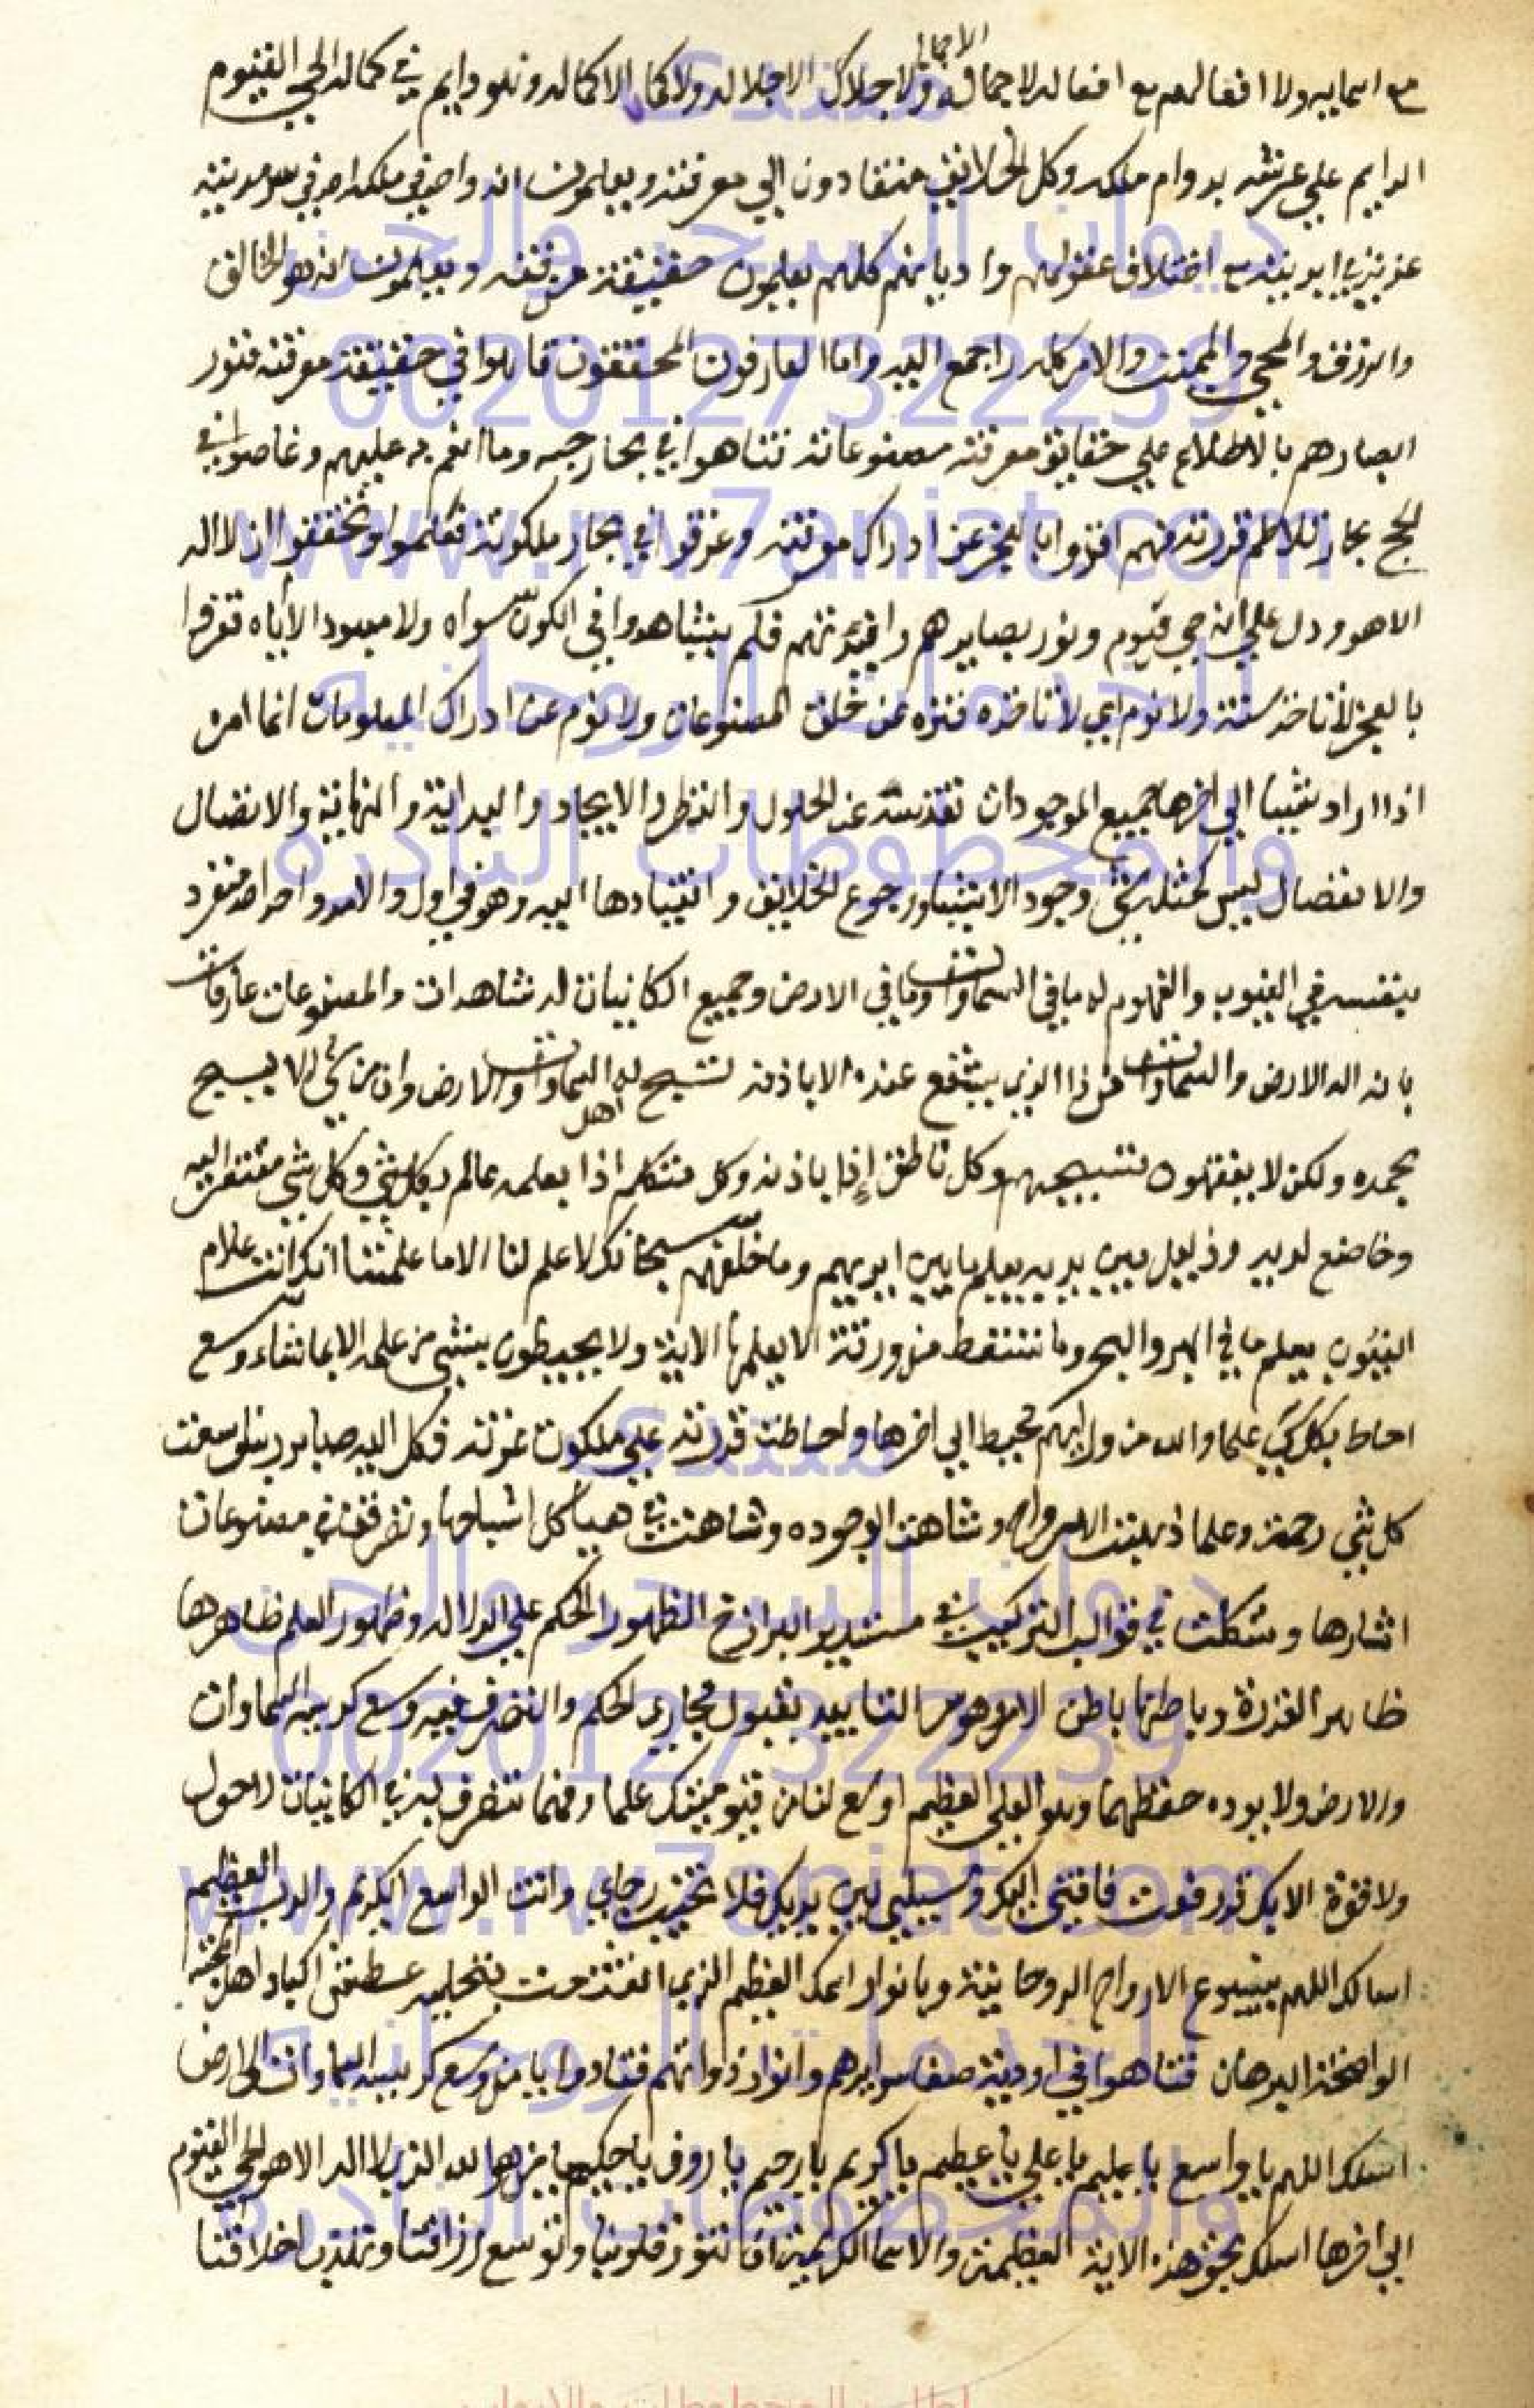 مع اسمايه ولا افعالهم مع افعاله لا جمال الاجماله ولا جلال الا جلاله ولا كمال الا كماله وهو دايم في كماله الحي القيوم
الدايم علي عرشه بدوام ملكه وكل الخلايق منقادون الي معرفته ويعلمون انه واحد في ملكه احد في سرمديته
عزيز في ابديته مع اختلاف عقولهم واديانهم كلهم يعلمون حقيقة معرفته ويعلمون انه هو الخالق
والرزق والمحيي والمميت والامر كله راجع اليه واما العارفون المحققون قاموا في حقيقة معرفته فنور
ابصارهم بالاطلاع علي حقايق معرفته مصنوعاته فتاهوا في بحار حبه وما انعم به عليهم وغاصوا في
لجج بحار تلاطم قدرته فهم اقروا بالعجز عن ادراك معرفته وغرقوا في بحار ملكوته فعلموا وتحققوا ان لا اله
الا هو ودل علي انه حي قيوم ونور بصايرهم وافيدتهم فلم يشاهدوا في الكون سواه ولا معبود الا اياه فتقروا
بالعجز لا تاخذه سنة ولا نوم اي لا تاخذه فتره عن خلق المصنوعات ولا نوم عن ادراك المعلومات انما امره
اذا اراد شيا الي اخرها جميع الموجودات تقدست عن الحلول والنظر والايجاد والبداية والنهاية والاتصال
والانفصال ليس كمثله شي وجود الاشيا ورجوع الخلايق وانقيادها اليه وهو في اول والامد واحد احد منفرد
بنفسه في الغيوب والفهوم له ما في السماوات وما في الارض وجميع الكائنات له شاهدات والمصنوعات عارفات
بانه اله الارض والسماوات من ذا الذي يشفع عنده الا باذنه تسبح له اهل السماوات والارض وان من شي الا يسبح
بحمده ولكن لا يفقهون تسبيحهم وكل ناطق إذا باذنه وكل متكلم اذا بعلمه عالم بكل شي وكل شي مفتقر اليه
وخاضع لديه وذليل بين يديه يعلم ما بين ايديهم وما خلفهم سبحانك لا علم لنا الا ما علمتنا انك انت علام
الغيوب يعلم ما في البر والبحر وما تسقط من ورقة الا يعلمها الاية ولا يحيطون بشي من علمه الا بما شاء وسع
احاط بكل شي علما والله من ورايهم محيط الي اخرها واحاطت قدرته علي ملكوت عزته فكل اليه صاير ربنا وسعت
كل شي رحمة وعلما ذهلت الارواح وتشاهت الوجوده وتشاهت في هياكل اشباحها وتفرقت في مصنوعات
اثارها وشكلت في قوالب التركيب في مستدير البرازخ الظهور الحكم علي الدراله وظهور العلم ظاهرها
ظاهر القدرة وباطنها باطن الامر وهو سر التاييد بقبول مجاري الحكم والتصرف فيه وسع كرسيه السماوات
والارض ولا يوده حفظهما وهو العلي العظيم اوسع لنا من قيوميتك علما وفهما نتصرف به في الكائنات لا حول
ولا قوة الا بك قدرفوت فاقتي اليك وتسبيلي بين يديك فلا تخيب رجاي وانت الواسع الكريم والرب العظيم
اسالك اللهم بينبوع الارواح الروحانية وبانوار اسمك العظيم الذي انفتحت بتجليه عطش اكباد اهل المحبة
الواضحة البرهان فتاهوا في اودية صفا سرايرهم وانوار ذواتهم فنادوا يا من وسع كرسيه السماوات والارض
اسلك اللهم يا واسع يا عليم يا علي يا عظيم يا كريم يا رحيم يا روف يا حكيم يا من هو الله الذي لا اله الا هو الحي القيوم
الي اخرها اسلك بحق هذه الاية العظيمة والاسما الكريمة ان تنور قلوبنا وتوسع ارزاقنا وتهذب اخلاقنا
منتدى
ديوان السحر والجن
00201273222239
www.rw7aniat.com
الخدمات الروحانيه
والمخطوطات النادره
منتدى
ديوان السحر والجن
00201273222239
www.rw7aniat.com
الخدمات الروحانيه
والمخطوطات النادره